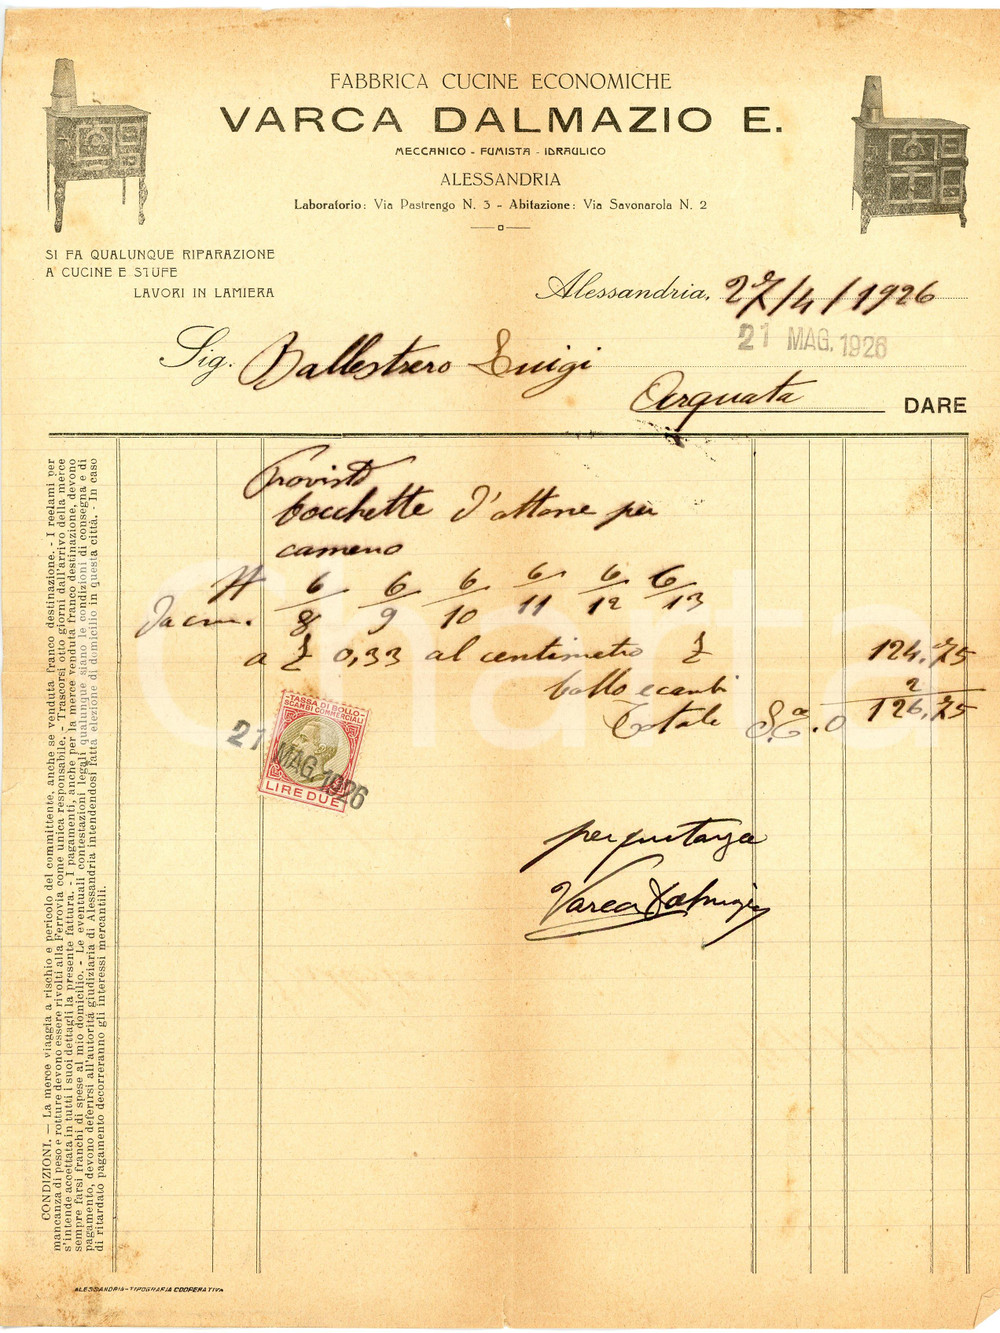 FABBRICA CUCINE ECONOMICHE
VARCA DALMAZIO E.
MECCANICO - FUMISTA - IDRAULICO
ALESSANDRIA
Laboratorio: Via Pastrengo N. 3 - Abitazione: Via Savonarola N. 2
SI FA QUALUNQUE RIPARAZIONE
A CUCINE E STUFE
LAVORI IN LAMIERA
Alessandria, 27/4/1926
21 MAG. 1926
Sig. Ballestrero Luigi
Arquata
DARE
Provisto
bocchette d'ottone per
cameno
N 6/8 6/9 6/10 6/11 6/12 6/13
Da cm.
a £ 0,33 al centimetro £ 124,75
bollo e cambi 2
Totale S.E.O 126,75
TASSA DI BOLLO
SCAMBI COMMERCIALI
LIRE DUE
21 MAG. 1926
per quitanza
Varca Dalmazio
CONDIZIONI. — La merce viaggia a rischio e pericolo del committente, anche se venduta franco destinazione. - I reclami per
mancanza di peso e rotture devono essere rivolti alla Ferrovia come unica responsabile. - Trascorsi otto giorni dall'arrivo della merce
s'intende accettata in tutti i suoi dettagli la presente fattura. - I pagamenti, anche per la merce venduta franco destinazione, devono
sempre farsi franchi di spese al mio domicilio. - Le eventuali contestazioni legali qualunque siano le condizioni di consegna e di
pagamento, devono deferirsi all'autorità giudiziaria di Alessandria intendendosi fatta elezione di domicilio in questa città. - In caso
di ritardato pagamento decorreranno gli interessi mercantili.
ALESSANDRIA-TIPOGRAFIA COOPERATIVA
Charta